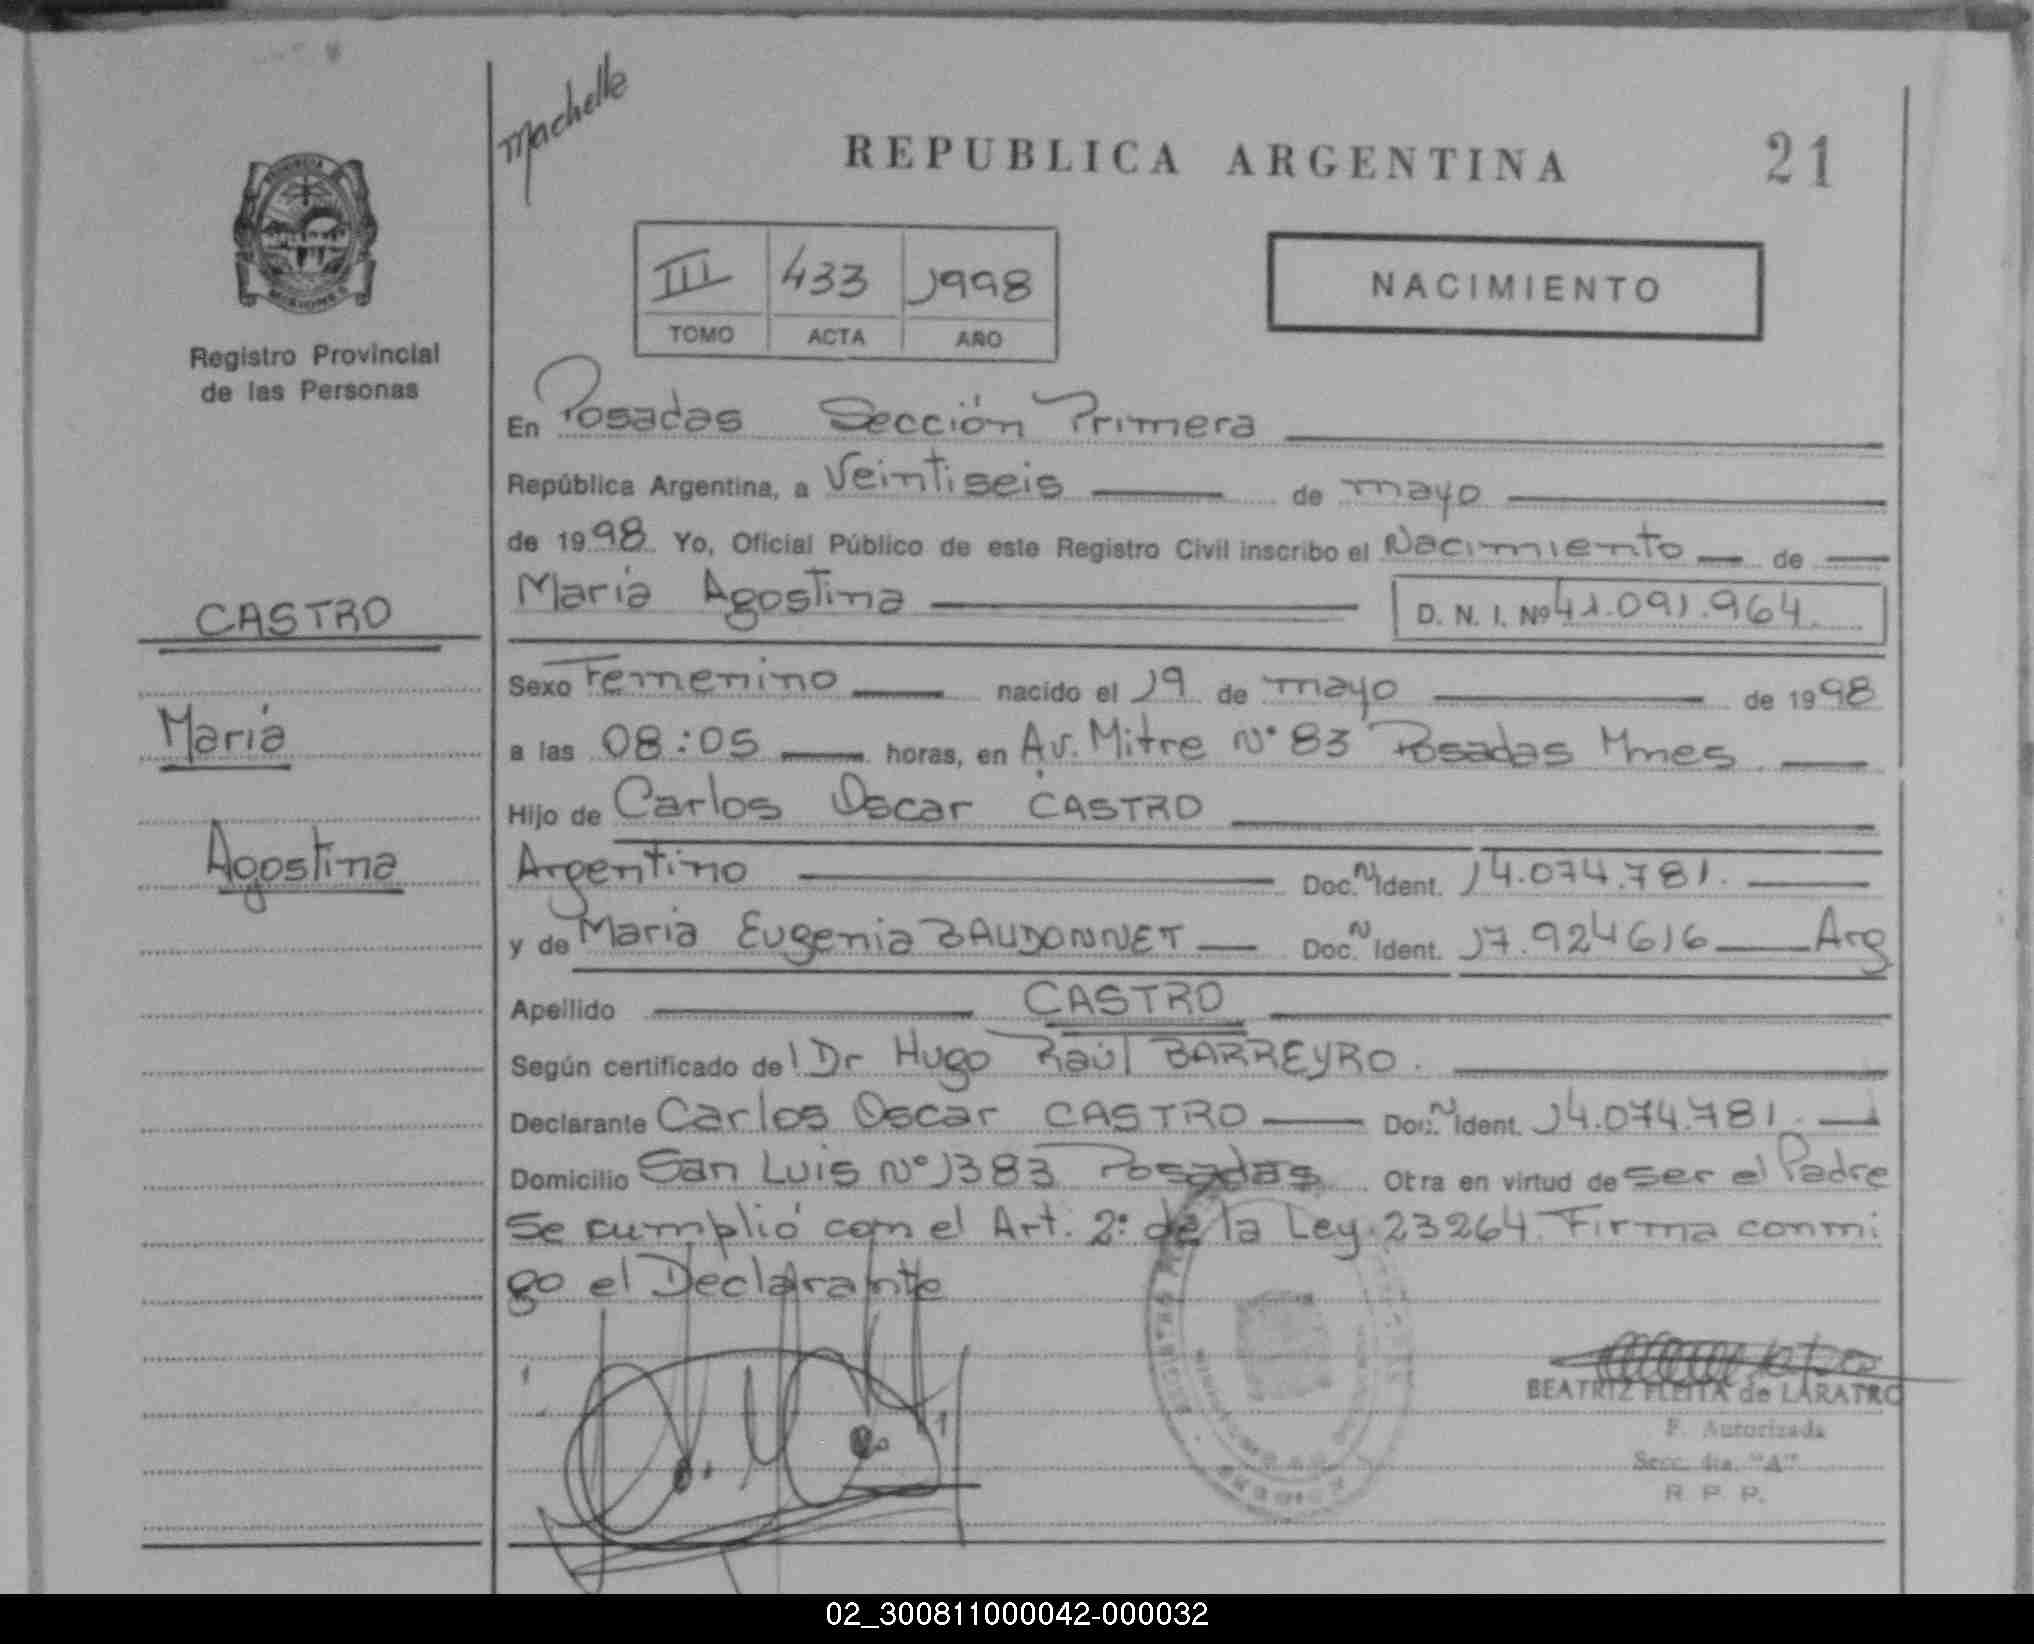 machelle
REPUBLICA ARGENTINA
21
PROVINCIA
MISIONES
Registro Provincial
de las Personas
III 433 1998
TOMO ACTA AÑO
NACIMIENTO
En Posadas Sección Primera
República Argentina, a Veintiseis de mayo
de 1998 Yo, Oficial Público de este Registro Civil inscribo el Nacimiento de
María Agostina D. N. I. Nº 41.091.964.
CASTRO
María
Agostina
Sexo Femenino nacido el 19 de mayo de 1998
a las 08:05 horas, en Av. Mitre Nº 83 Posadas Mnes
Hijo de Carlos Oscar CASTRO
Argentino Doc. N Ident. 14.074.781.
y de María Eugenia BAUDONNET Doc. N Ident. 17.924616 Arg
Apellido CASTRO
Según certificado del Dr Hugo Raúl BARREYRO.
Declarante Carlos Oscar CASTRO Doc. N Ident. 14.074.781.
Domicilio San Luis Nº 1383 Posadas Otra en virtud de ser el Padre
Se cumplió con el Art. 2º de la Ley 23264. Firma conmi
go el Declarante
BEATRIZ FLEITA de LARATRO
F. Autorizada
Secc. 4ta. "A"
R. P. P.
02_300811000042-000032